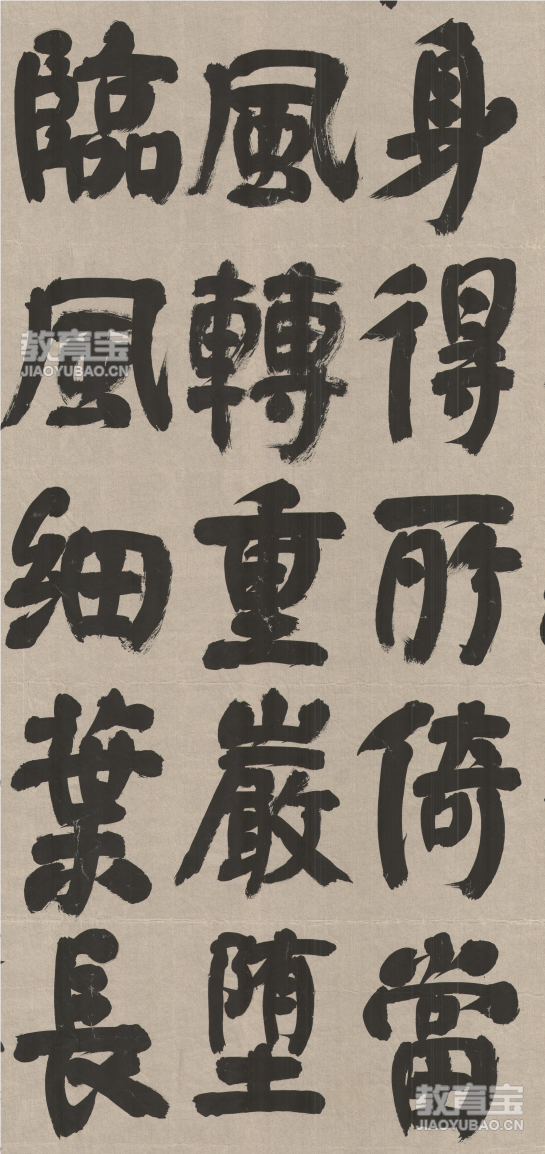 身得所倚當
風轉重嚴堕
臨風細葉長
教育宝
JIAOYUBAO.CN
教育宝
JIAOYUBAO.CN